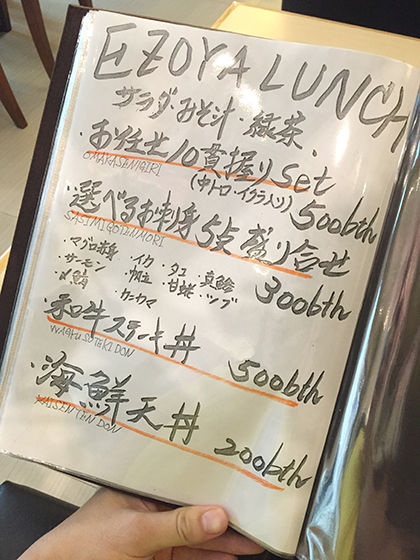 EZOYA LUNCH
サラダ・みそ汁・緑茶、
・おまかせ10貫握りset
OMAKASENIGIRI
(中トロ・イクラ入り) 500bth
・選べるお刺身5点盛り合せ
SASIMIGOTENMORI
・マグロ赤身 ・イカ ・タコ ・真鯵
・サーモン ・帆立 ・甘蝦 ・ツブ
・〆鯖 ・カニカマ 300bth
・和牛ステーキ丼
WAGYUSUTEKIDON
500bth
・海鮮天丼
KAISENTENDON
200bth